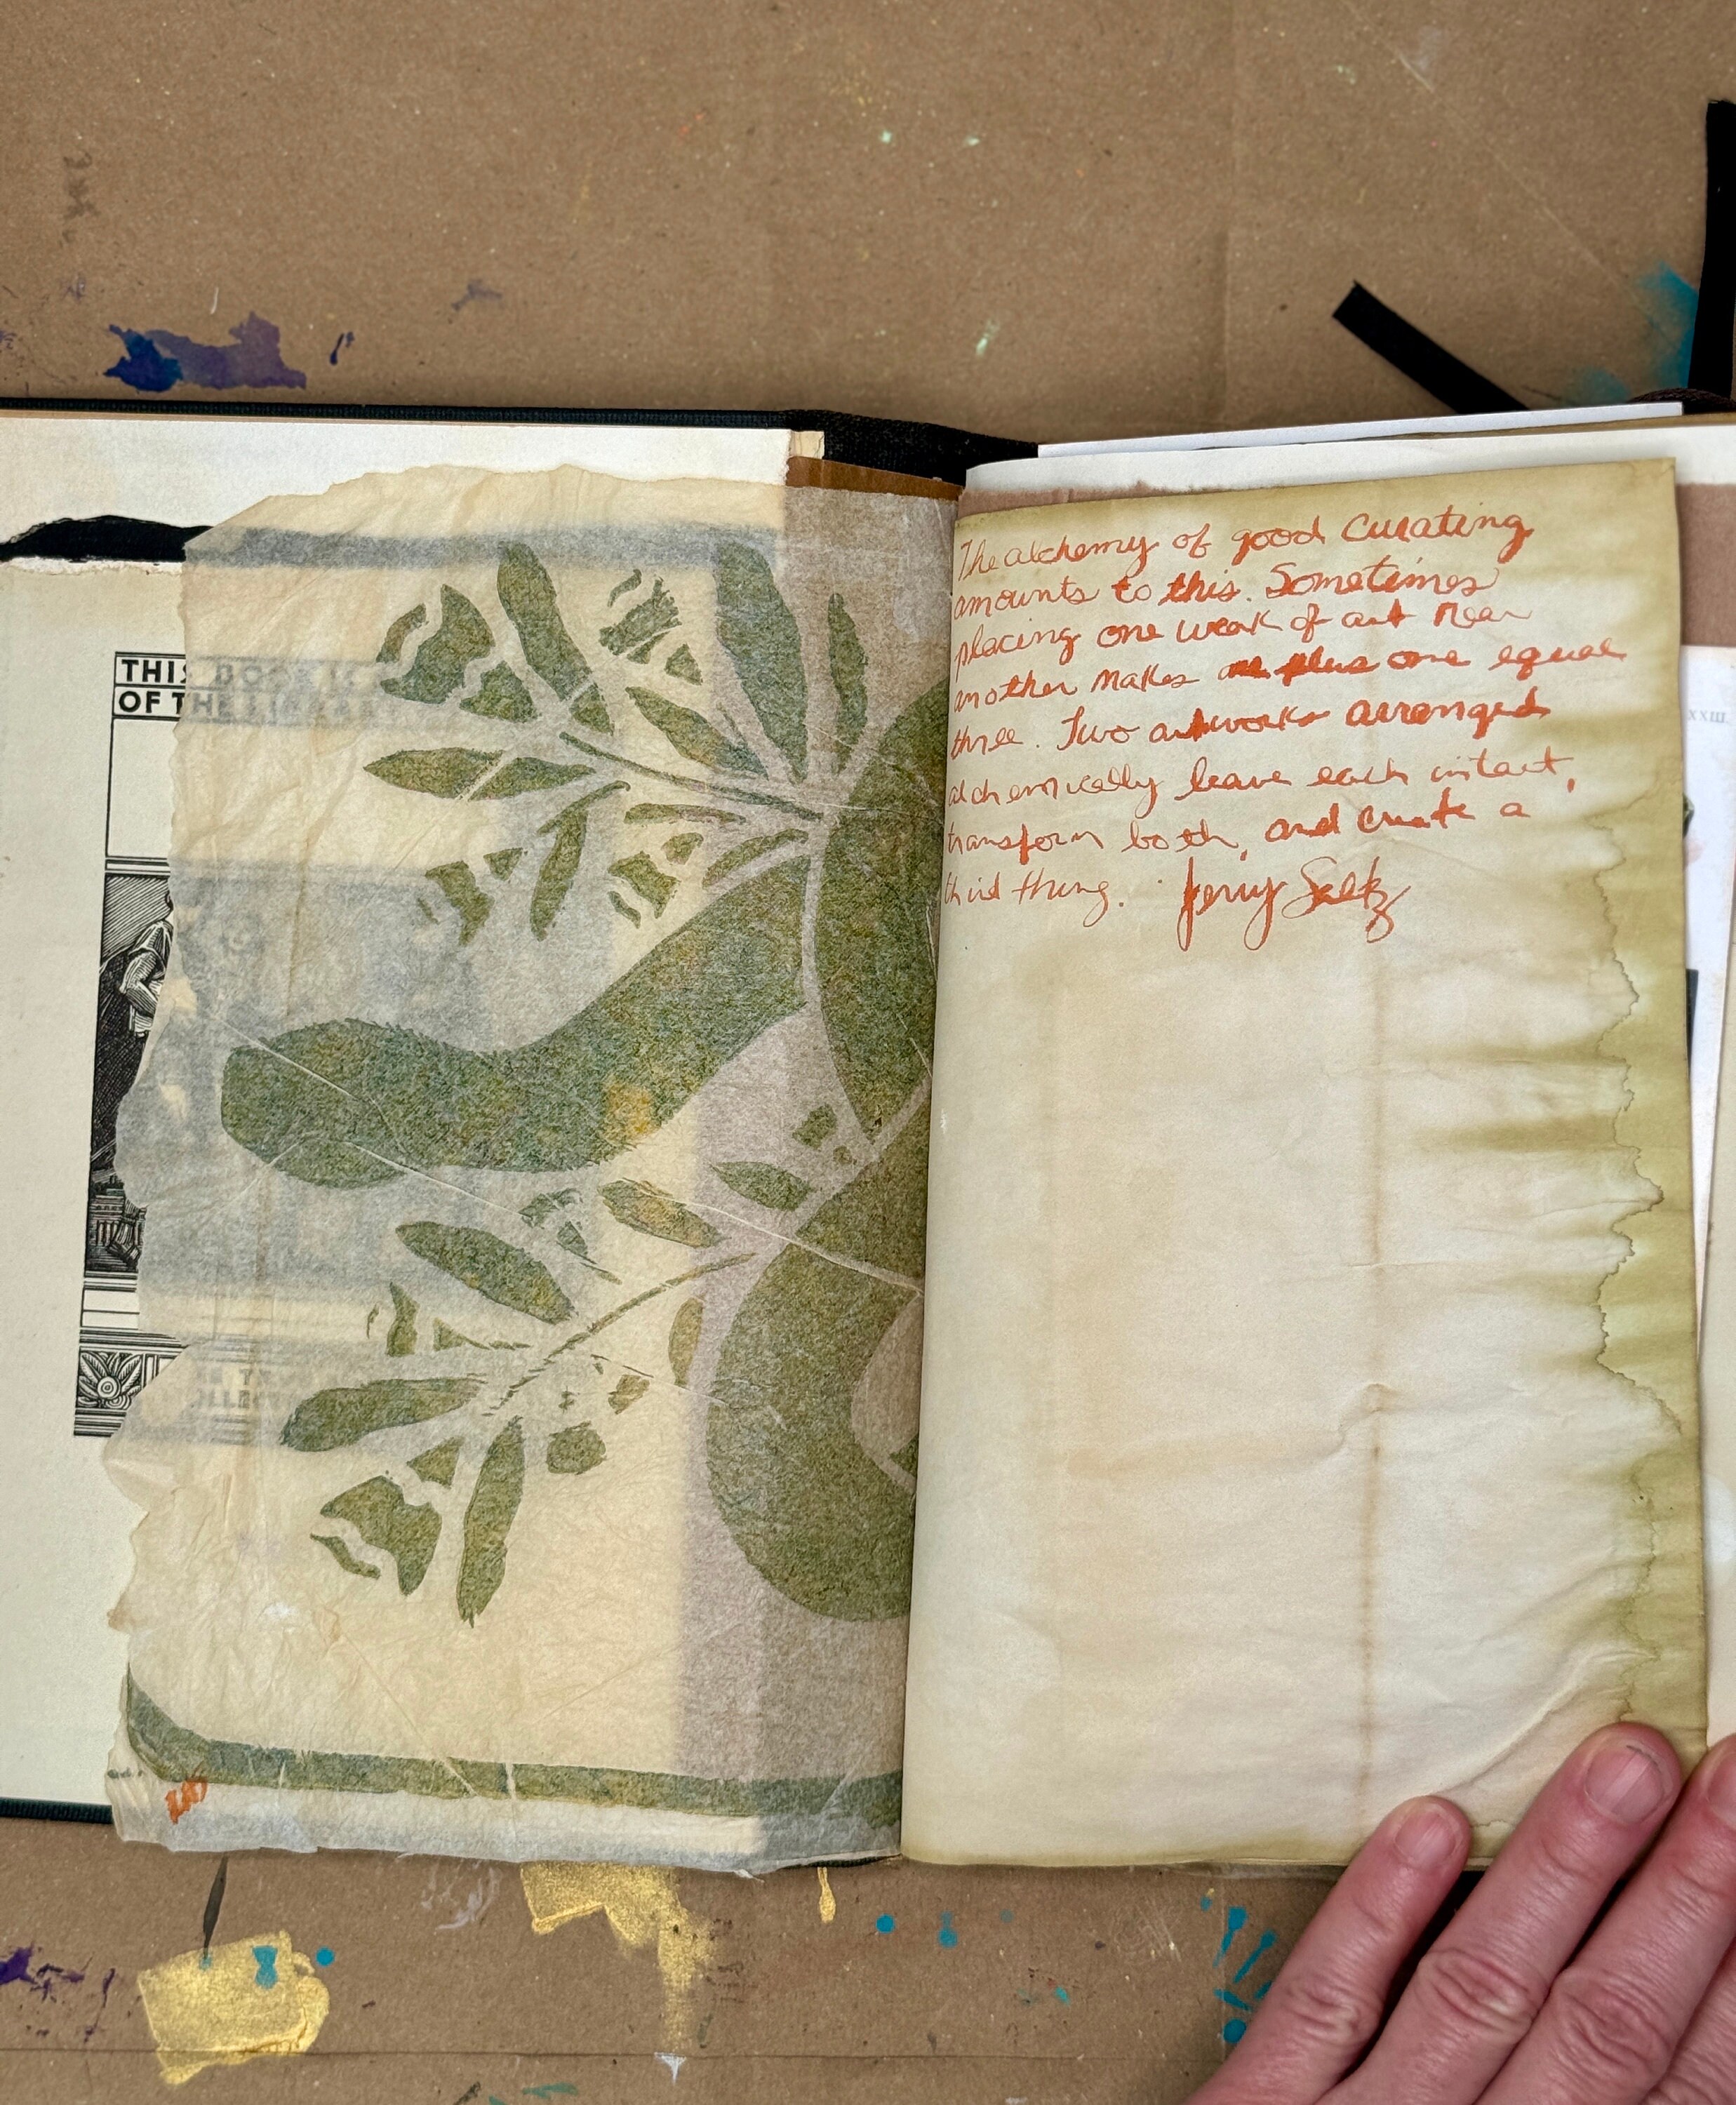 THIS BOOK IS
OF THE LIBRARY
The alchemy of good curating
amounts to this. Sometimes
placing one work of art near
another makes one plus one equal
three. Two artworks arranged
alchemically leave each intact,
transform both, and create a
third thing. Jerry Saltz
XXIII